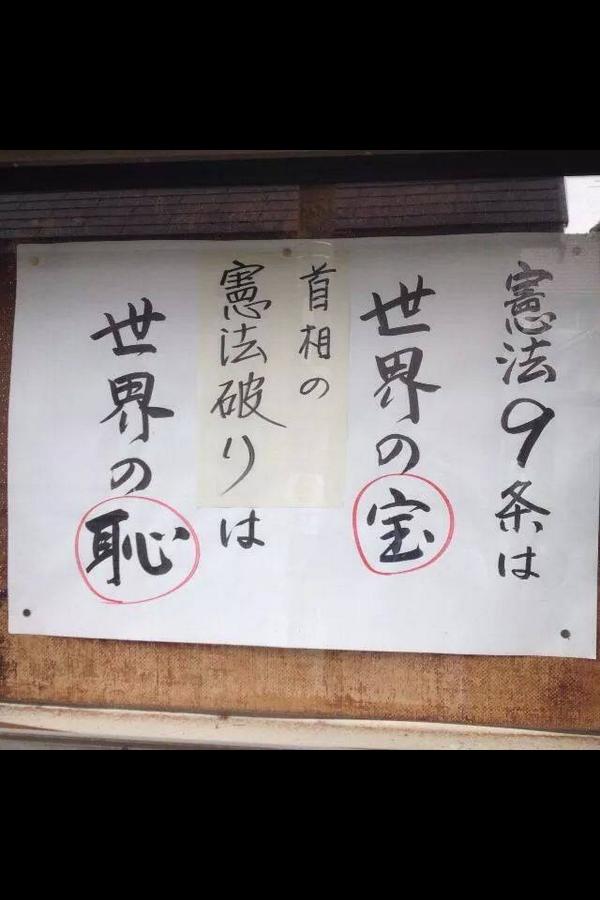 憲法9条は
世界の宝
首相の
憲法破りは
世界の恥